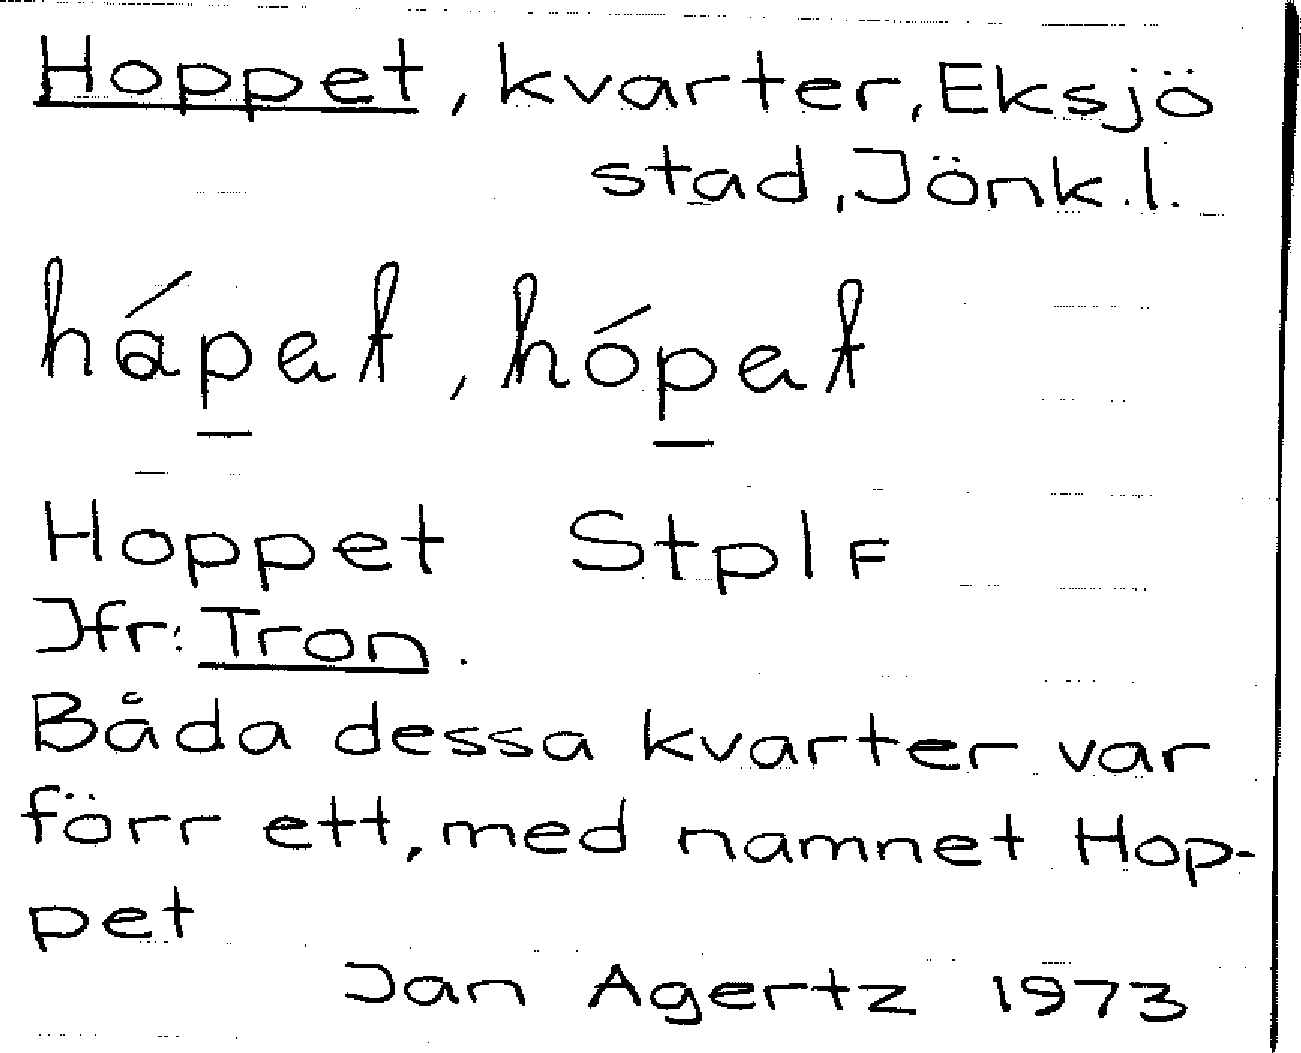 Hoppet, kvarter, Eksjö
stad, Jönk.l.
hápet, hópet
Hoppet Stplf
Jfr: Tron.
Båda dessa kvarter var
förr ett, med namnet Hop-
pet
Jan Agertz 1973